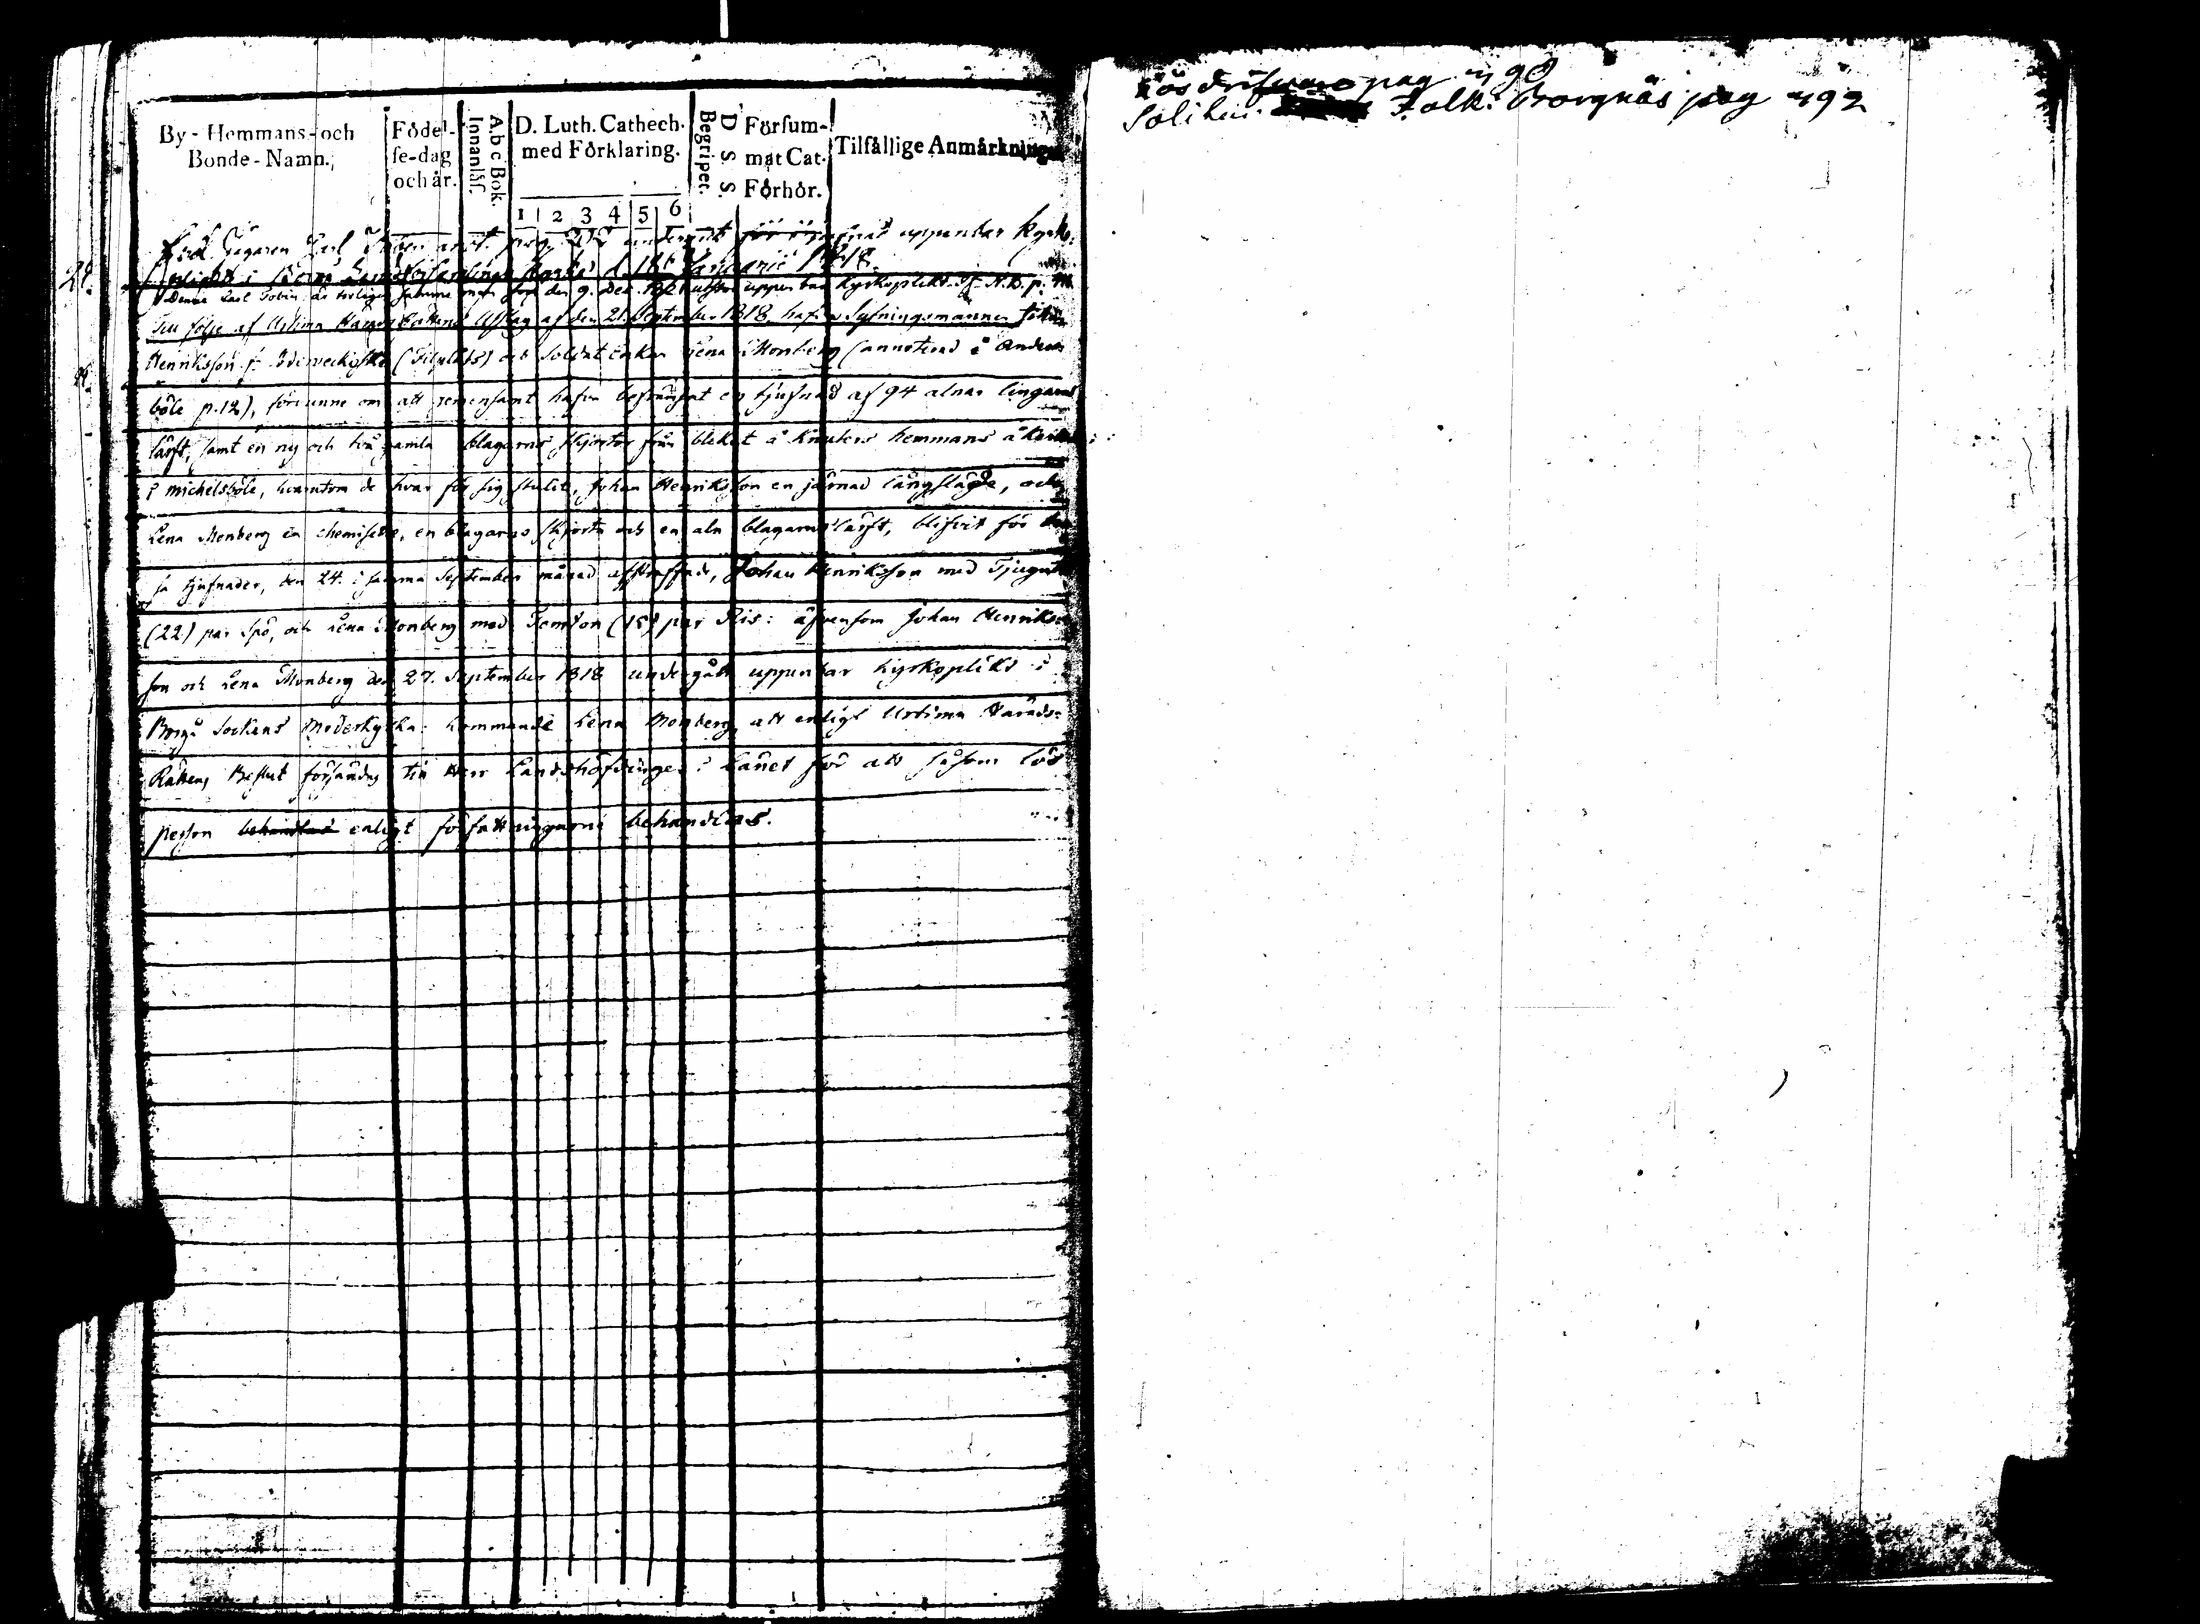 By-Hemmans-och Bonde-Namn.
Födel-se-dag och år.
A.b c Bok. Innanläs.
D. Luth. Cathech. med Förklaring.
1 2 3 4 5 6
Begriper. D S S.
Försum-mat Cat. Förhör.
Tilfällige Anmärkninge
Carl pag. 212 undergick uppenbar Kyrko-
plikt i 1818.
Denna Carl den 9. Dec. uppenbar Kyrkoplikt N.B. p.
Till följe af Urtima Utslag af den 21. September 1818, hafva Sytningsmannen Johan
Henriksson f: (Titulus) och Soldat Enkan Lena Monberg (annoterad i Anders
böle p. 12), förvunne om att gemensamt hafva bestämplat en tjufnad af 94 alnar lingarns
lärft, samt en ny och två gamla blagarns skjortor från bleket å Knuters hemmans åker
i Michelsböle, hvarutom de hvar för sig stulit, Johan Henriksson en järnad långsläde, och
Lena Monberg en chemisette, en blagarns skjorta och en aln blagarns lärft, blifvit för des
sa tjufnader, den 24. i samma September månad afstraffade, Johan Henriksson med Tjugutvå
(22) par Spö, och Lena Monberg med Femton (15) par Ris: äfvensom Johan Henriks
son och Lena Monberg den 27. September 1818 undergått uppenbar kyrkoplikt i
Borgå Sockens Moderkyrka: kommande Lena Monberg att enligt Urtima Härads-
Rättens Beslut försändas till Herr Landshöfdingen i Länet för att såsom lös
person behandlas enligt författningarne behandlas.
Lösdrifvare pag 490
Folk: Borgnäs pag 492